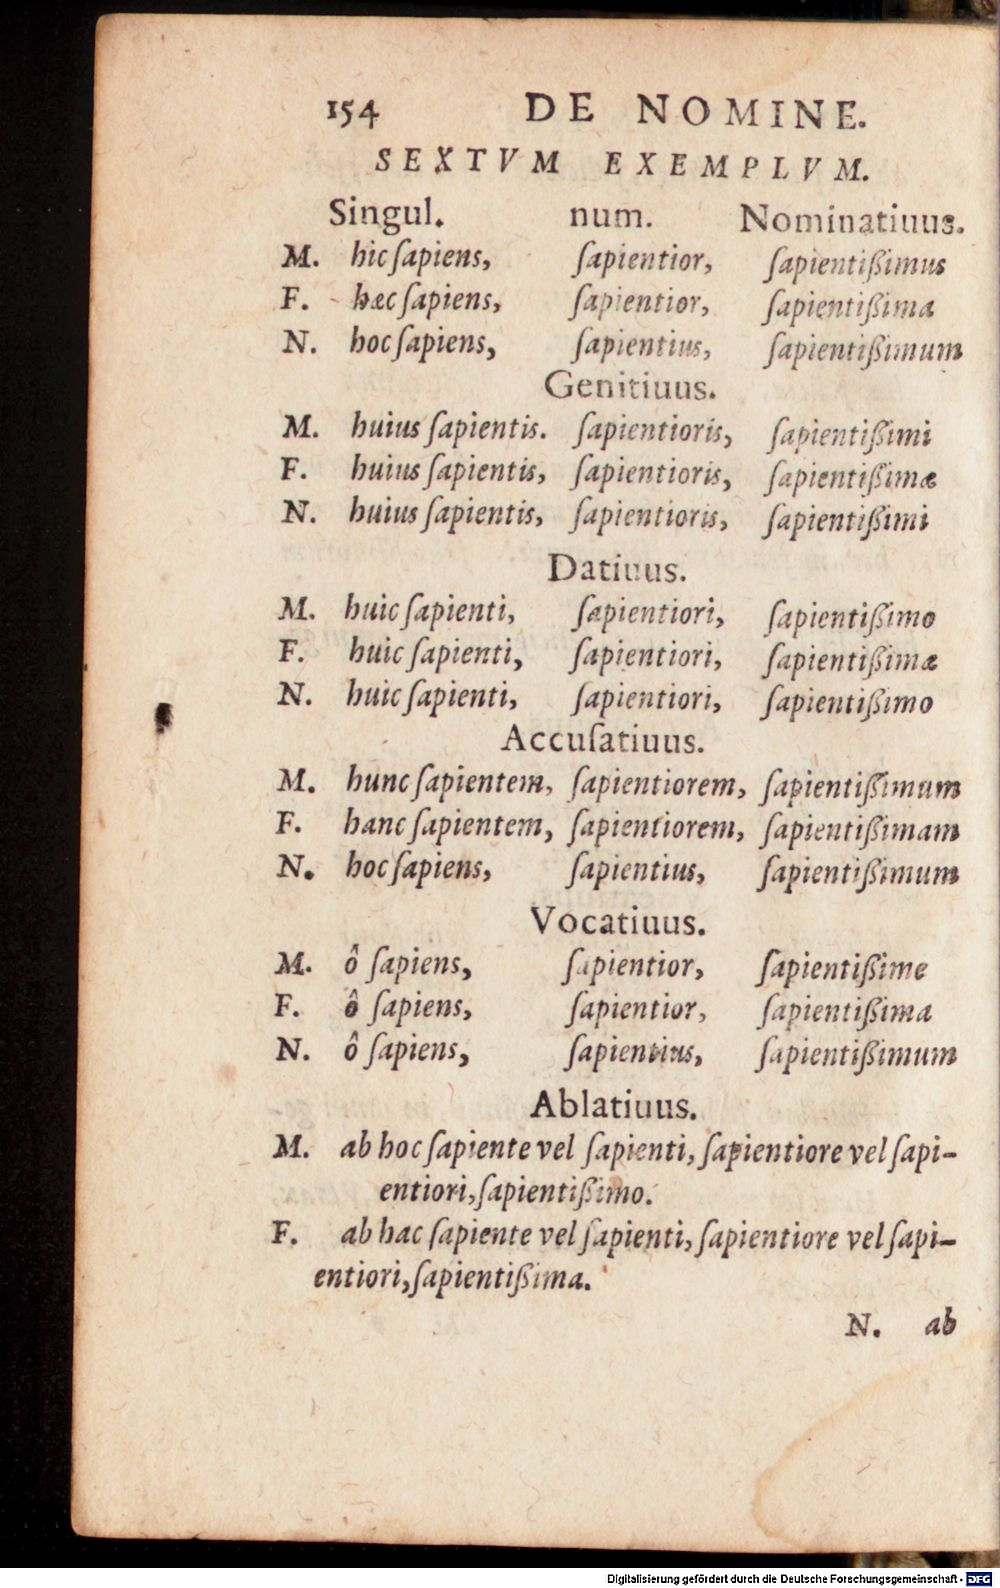 154 DE NOMINE.
SEXTVM EXEMPLVM.
Singul. num. Nominatiuus.
M. hic ſapiens, ſapientior, ſapientiſſimus
F. hæc ſapiens, ſapientior, ſapientiſſima
N. hoc ſapiens, ſapientius, ſapientiſſimum
Genitiuus.
M. huius ſapientis. ſapientioris, ſapientiſſimi
F. huius ſapientis, ſapientioris, ſapientiſſimæ
N. huius ſapientis, ſapientioris, ſapientiſſimi
Datiuus.
M. huic ſapienti, ſapientiori, ſapientiſſimo
F. huic ſapienti, ſapientiori, ſapientiſſimæ
N. huic ſapienti, ſapientiori, ſapientiſſimo
Accuſatiuus.
M. hunc ſapientem, ſapientiorem, ſapientiſſimum
F. hanc ſapientem, ſapientiorem, ſapientiſſimam
N. hoc ſapiens, ſapientius, ſapientiſſimum
Vocatiuus.
M. ô ſapiens, ſapientior, ſapientiſſime
F. ô ſapiens, ſapientior, ſapientiſſima
N. ô ſapiens, ſapientius, ſapientiſſimum
Ablatiuus.
M. ab hoc ſapiente vel ſapienti, ſapientiore vel ſapi-
entiori, ſapientiſſimo.
F. ab hac ſapiente vel ſapienti, ſapientiore vel ſapi-
entiori, ſapientiſſima.
N. ab
Digitalisierung gefördert durch die Deutsche Forschungsgemeinschaft - DFG